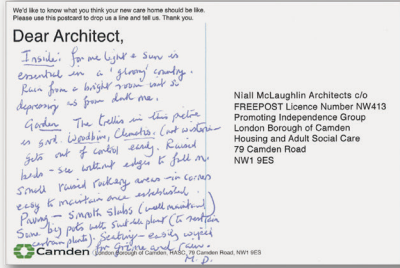 We'd like to know what you think your new care home should be like.
Please use this postcard to drop us a line and tell us. Thank you.
Dear Architect,
Inside: for me light & sun is
essential in a 'gloomy' country.
Rain from a bright room not so
depressing as from dark one.
Garden. The trellis in this picture
is good. Woodbine, Clematis. (not wisteria -
gets out of control easily. Raised
beds - see without edges to fall on.
Small raised rockery areas - in corners
easy to maintain once established.
Paving - smooth slabs (well maintained)
Some big pots with suitable plant (to restrain
certain plants). Seating - easily wiped
for grime and rain.
M.D.
Niall McLaughlin Architects c/o
FREEPOST Licence Number NW413
Promoting Independence Group
London Borough of Camden
Housing and Adult Social Care
79 Camden Road
NW1 9ES
Camden London Borough of Camden, HASC, 79 Camden Road, NW1 9ES